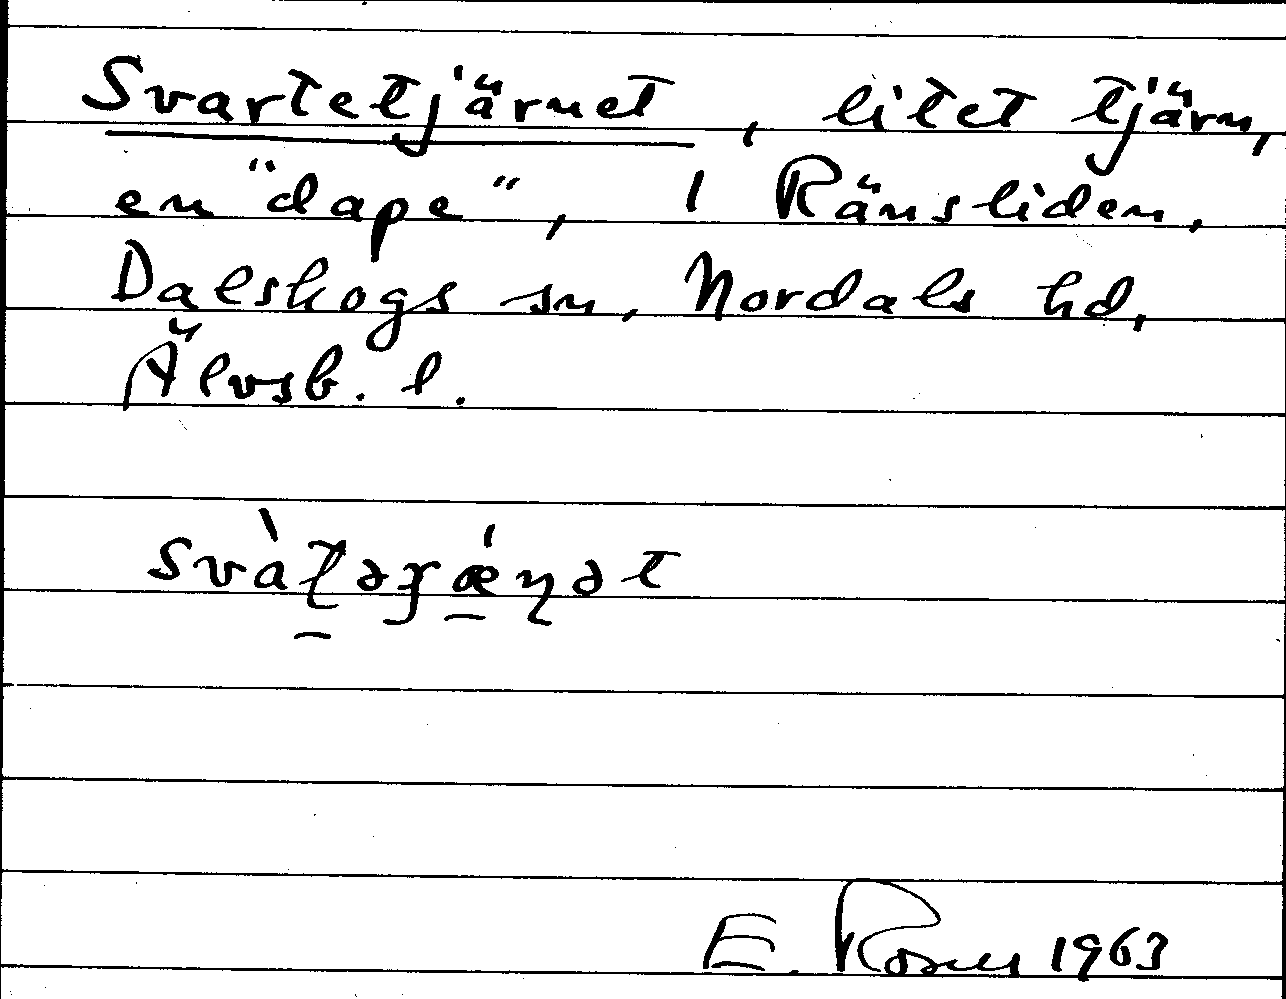 Svartetjärnet, litet tjärn,
en "dape", i Ränsliden,
Dalskogs sn, Nordals hd,
Älvsb. l.
E. Rosell 1963